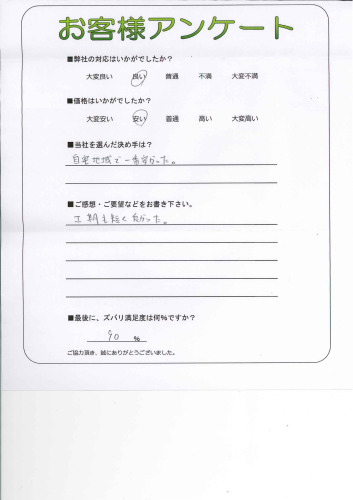 お客様アンケート
■弊社の対応はいかがでしたか？
大変良い 良い 普通 不満 大変不満
■価格はいかがでしたか？
大変安い 安い 普通 高い 大変高い
■当社を選んだ決め手は？
自宅地域で一番安かった。
■ご感想・ご要望などをお書き下さい。
工期も短く良かった。
■最後に、ズバリ満足度は何％ですか？
90 ％
ご協力頂き、誠にありがとうございました。